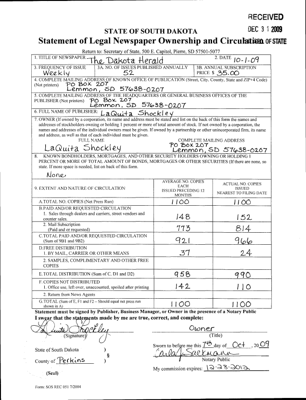 RECEIVED
DEC 31 2009
STATE OF SOUTH DAKOTA
Statement of Legal Newspaper Ownership and Circulation OF STATE
Return to: Secretary of State, 500 E. Capitol, Pierre, SD 57501-5077
1. TITLE OF NEWSPAPER The Dakota Herald 2. DATE 10-1-09
3. FREQUENCY OF ISSUE Weekly
3A. NO. OF ISSUES PUBLISHED ANNUALLY 52
3B. ANNUAL SUBSCRIPTION PRICE $ 35.00
4. COMPLETE MAILING ADDRESS OF KNOWN OFFICE OF PUBLICATION (Street, City, County, State and ZIP+4 Code)
(Not printers) PO Box 207
Lemmon, SD 57638-0207
5. COMPLETE MAILING ADDRESS OF THE HEADQUARTERS OR GENERAL BUSINESS OFFICES OF THE
PUBLISHER (Not printer) PO Box 207
Lemmon, SD 57638-0207
6. FULL NAME OF PUBLISHER: LaQuita Shockley
7. OWNER (If owned by a corporation, its name and address must be stated and list on the back of this form the names and
addresses of stockholders owning or holding 1 percent or more of total amount of stock. If not owned by a corporation, the
names and addresses of the individual owners must be given. If owned by a partnership or other unincorporated firm, its name
and address, as well as that of each individual must be given.
FULL NAME COMPLETE MAILING ADDRESS
LaQuita Shockley PO Box 207
Lemmon, SD 57638-0207
8. KNOWN BONDHOLDERS, MORTGAGES, AND OTHER SECURITY HOLDERS OWNING OR HOLDING 1
PERCENT OR MORE OF TOTAL AMOUNT OF BONDS, MORTGAGES OR OTHER SECURITIES (If there are none, so
state. If more space is needed, list on back of this form.
None
9. EXTENT AND NATURE OF CIRCULATION
AVERAGE NO. COPIES EACH ISSUED PRECEDING 12 MONTHS
ACTUAL NO. COPIES ISSUED NEAREST TO FILING DATE
A. TOTAL NO. COPIES (Net Press Run) 1100 1100
B. PAID AND/OR REQUESTED CIRCULATION
1. Sales through dealers and carriers, street vendors and
counter sales 148 152
2. Mail Subscription
(Paid and or requested) 773 814
C. TOTAL PAID AND/OR REQUESTED CIRCULATION
(Sum of 9B1 and 9B2) 921 966
D. FREE DISTRIBUTION
1. BY MAIL, CARRIER OR OTHER MEANS 37 24
2. SAMPLES, COMPLIMENTARY AND OTHER FREE
COPIES
E. TOTAL DISTRIBUTION (Sum of C, D1 and D2) 958 990
F. COPIES NOT DISTRIBUTED
1. Office use, left over, unaccounted, spoiled after printing 142 110
2. Return from News Agents
G. TOTAL (Sum of E, F1 and F2 - Should equal net press run
shown in A) 1100 1100
Statement must be signed by Publisher, Business Manager, or Owner in the presence of a Notary Public
I swear that the statements made by me are true, correct, and complete:
LaQuita Shockley Owner
(Signature) (Title)
State of South Dakota )
County of Perkins )
Sworn to before me this 7th day of Oct. 2009
Notary Public
(Seal)
My commission expires: 12-23-2012